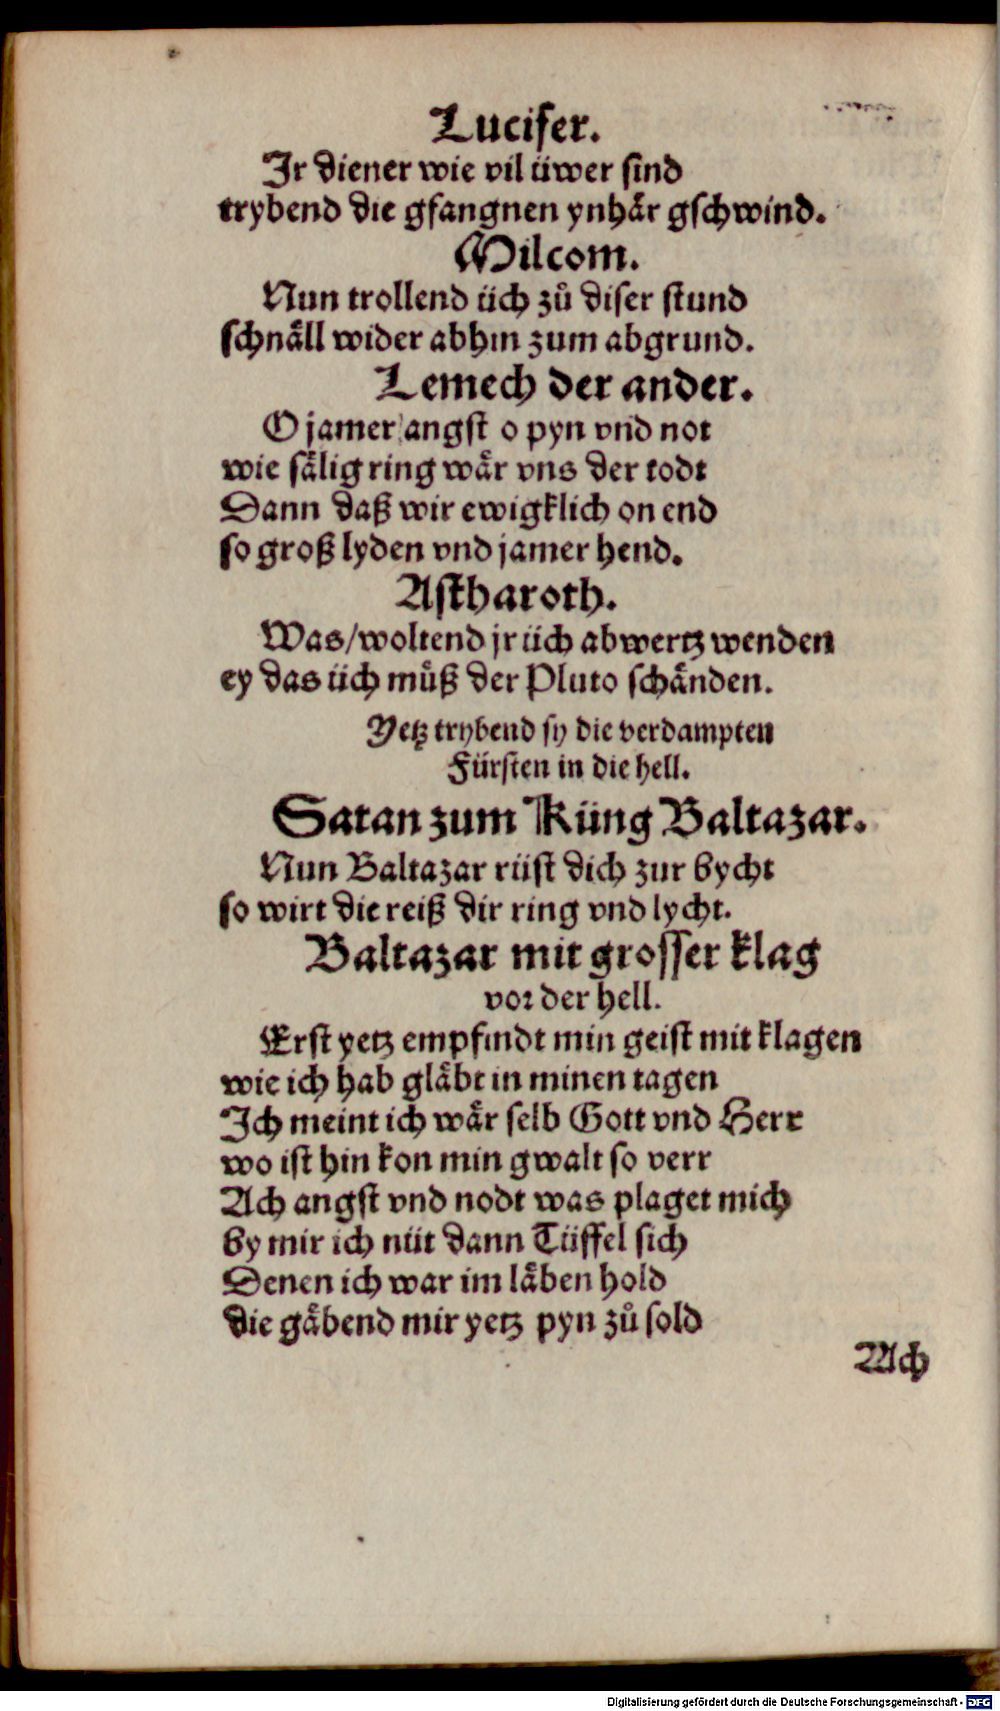 Lucifer.
Jr diener wie vil üwer sind
trybend die gfangnen ynhaͤr gschwind.
Milcom.
Nun trollend üch zuͦ diser stund
schnaͤll wider abhin zum abgrund.
Lemech der ander.
O jamer angst o pyn vnd not
wie saͤlig ring waͤr vns der todt
Dann daß wir ewigklich on end
so groß lyden vnd jamer hend.
Astharoth.
Was/woltend jr üch abwertz wenden
ey das üch muͤß der Pluto schaͤnden.
Yetz trybend sy die verdampten
Fürsten in die hell.
Satan zum Küng Baltazar.
Nun Baltazar rüst dich zur bycht
so wirt die reiß dir ring vnd lycht.
Baltazar mit grosser klag
vor der hell.
Erst yetz empfindt min geist mit klagen
wie ich hab glaͤbt in minen tagen
Ich meint ich waͤr selb Gott vnd Herr
wo ist hin kon min gwalt so verr
Ach angst vnd nodt was plaget mich
by mir ich nüt dann Tüffel sich
Denen ich war im laͤben hold
die gaͤbend mir yetz pyn zuͦ sold
Ach
Digitalisierung gefördert durch die Deutsche Forschungsgemeinschaft - DFG